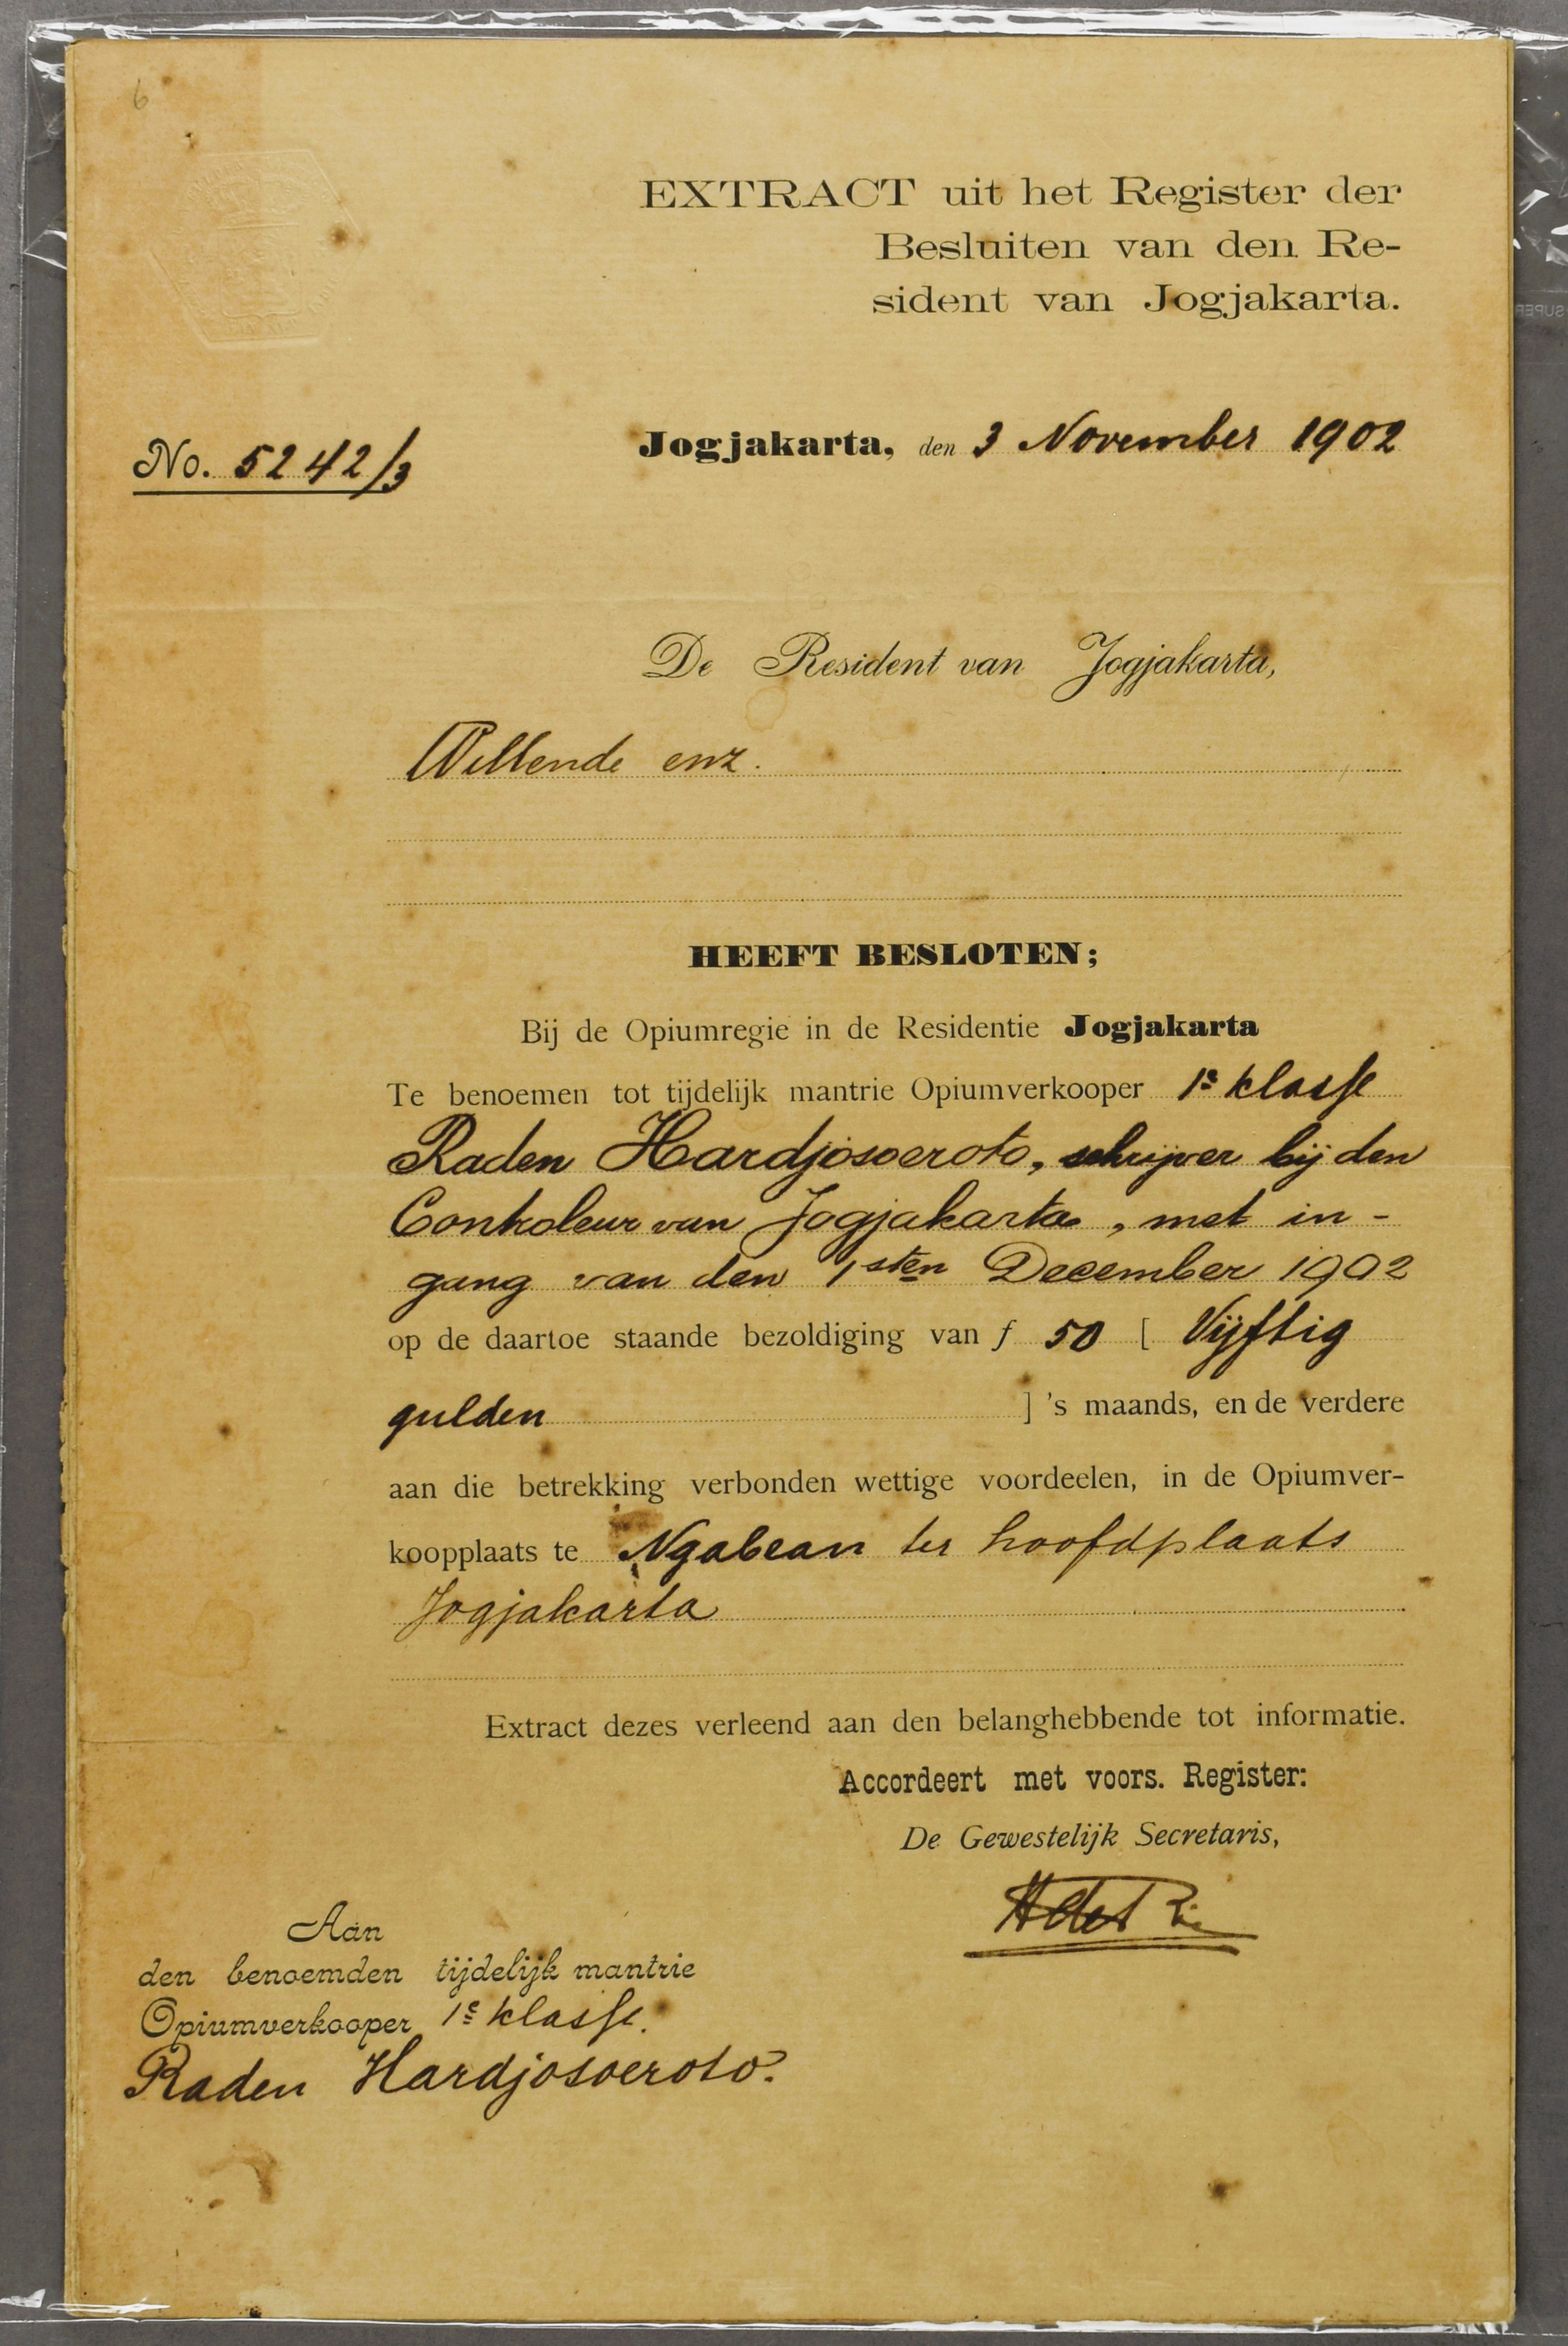 6
EXTRACT uit het Register der
Besluiten van den Re-
sident van Jogjakarta.
No. 5242/3
Jogjakarta, den 3 November 1902
De Resident van Jogjakarta,
Willende enz.
HEEFT BESLOTEN;
Bij de Opiumregie in de Residentie Jogjakarta
Te benoemen tot tijdelijk mantrie Opiumverkooper 1e klasse
Raden Hardjosoeroto, schrijver bij den
Controleur van Jogjakarta, met in-
gang van den 1sten December 1902
op de daartoe staande bezoldiging van f 50 [ Vijftig
gulden ] 's maands, en de verdere
aan die betrekking verbonden wettige voordeelen, in de Opiumver-
koopplaats te Ngabean ter hoofdplaats
Jogjakarta
Extract dezes verleend aan den belanghebbende tot informatie.
Accordeert met voors. Register:
De Gewestelijk Secretaris,
Aan
den benoemden tijdelijk mantrie
Opiumverkooper 1e klasse.
Raden Hardjosoeroto.